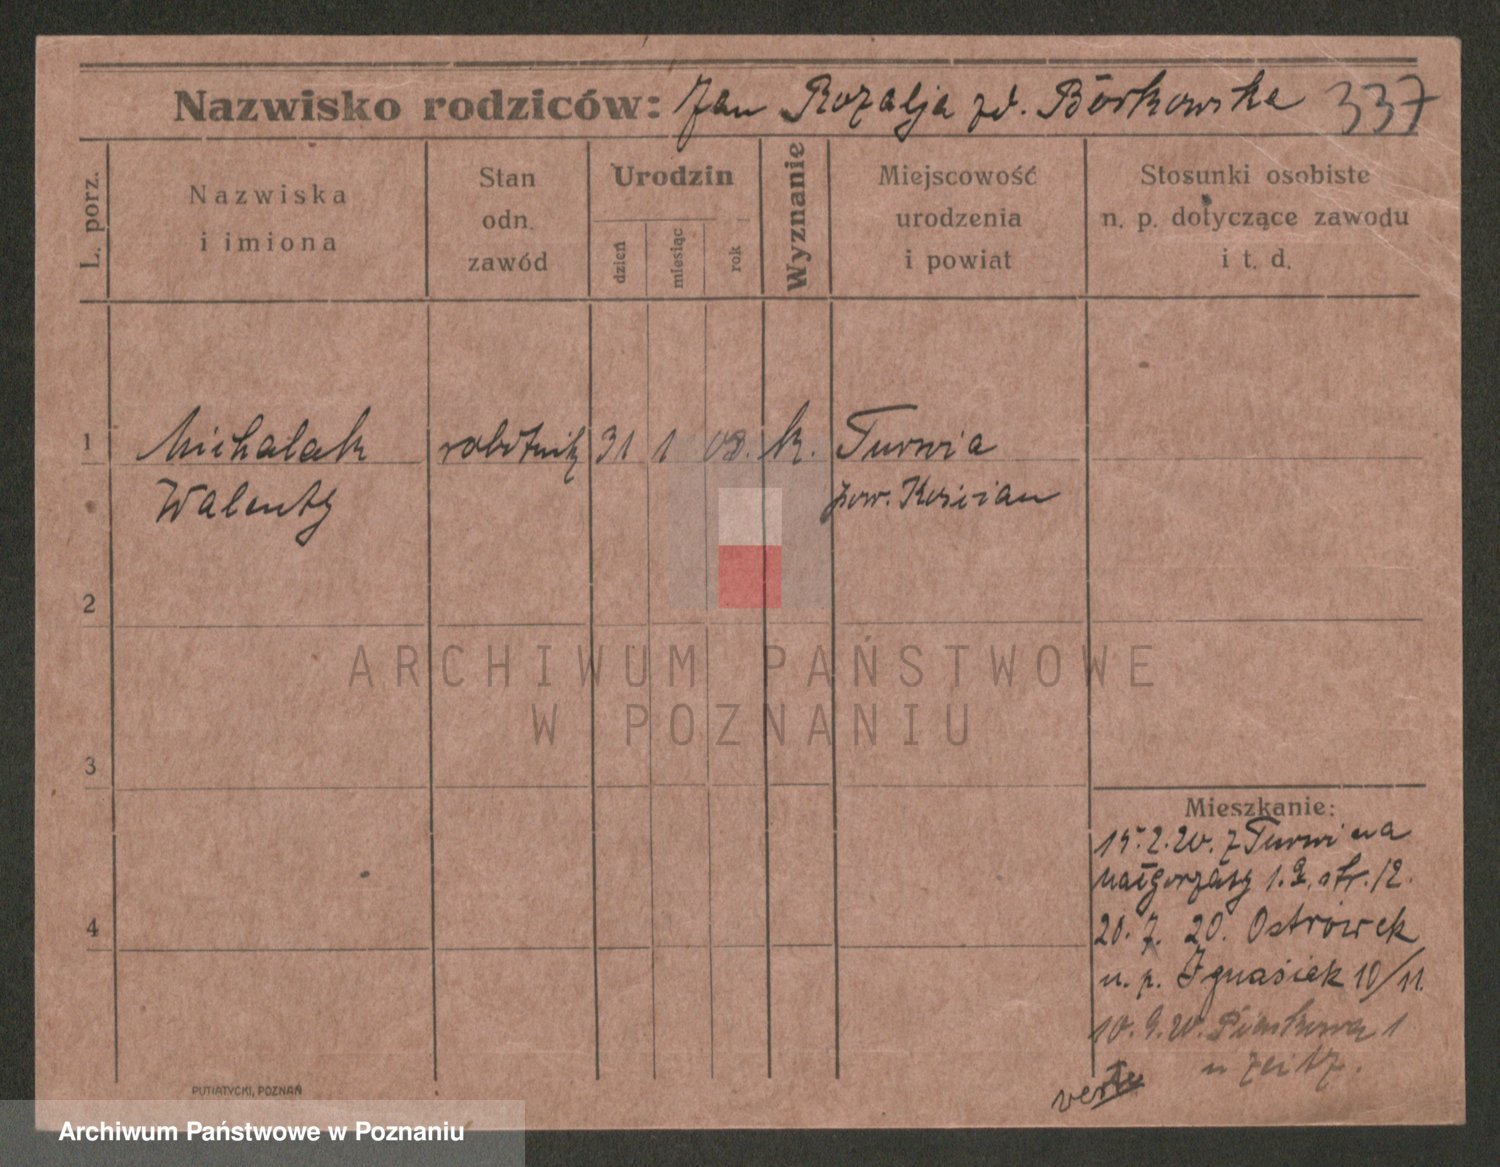 Nazwisko rodziców: Jan Rozalja zd. Bórkowska 337
L. porz.
Nazwiska
i imiona
Stan
odn.
zawód
Urodzin
dzień
miesiąc
rok
Wyznanie
Miejscowość
urodzenia
i powiat
Stosunki osobiste
n. p. dotyczące zawodu
i t. d.
1 Michalak robotnik 31 1 08. k. Turwia
Walenty pow. Kościan
2
ARCHIWUM PAŃSTWOWE
W POZNANIU
3
Mieszkanie:
15.2.20. z Turwi na
Małgorzaty 1. str. 12.
4
20. 7. 20. Ostrówek
u. p. Ignasiek 10/11.
10. 9. 20. Piaskowa 1
u Zeitz.
verte
PUTIATYCKI, POZNAŃ
Archiwum Państwowe w Poznaniu